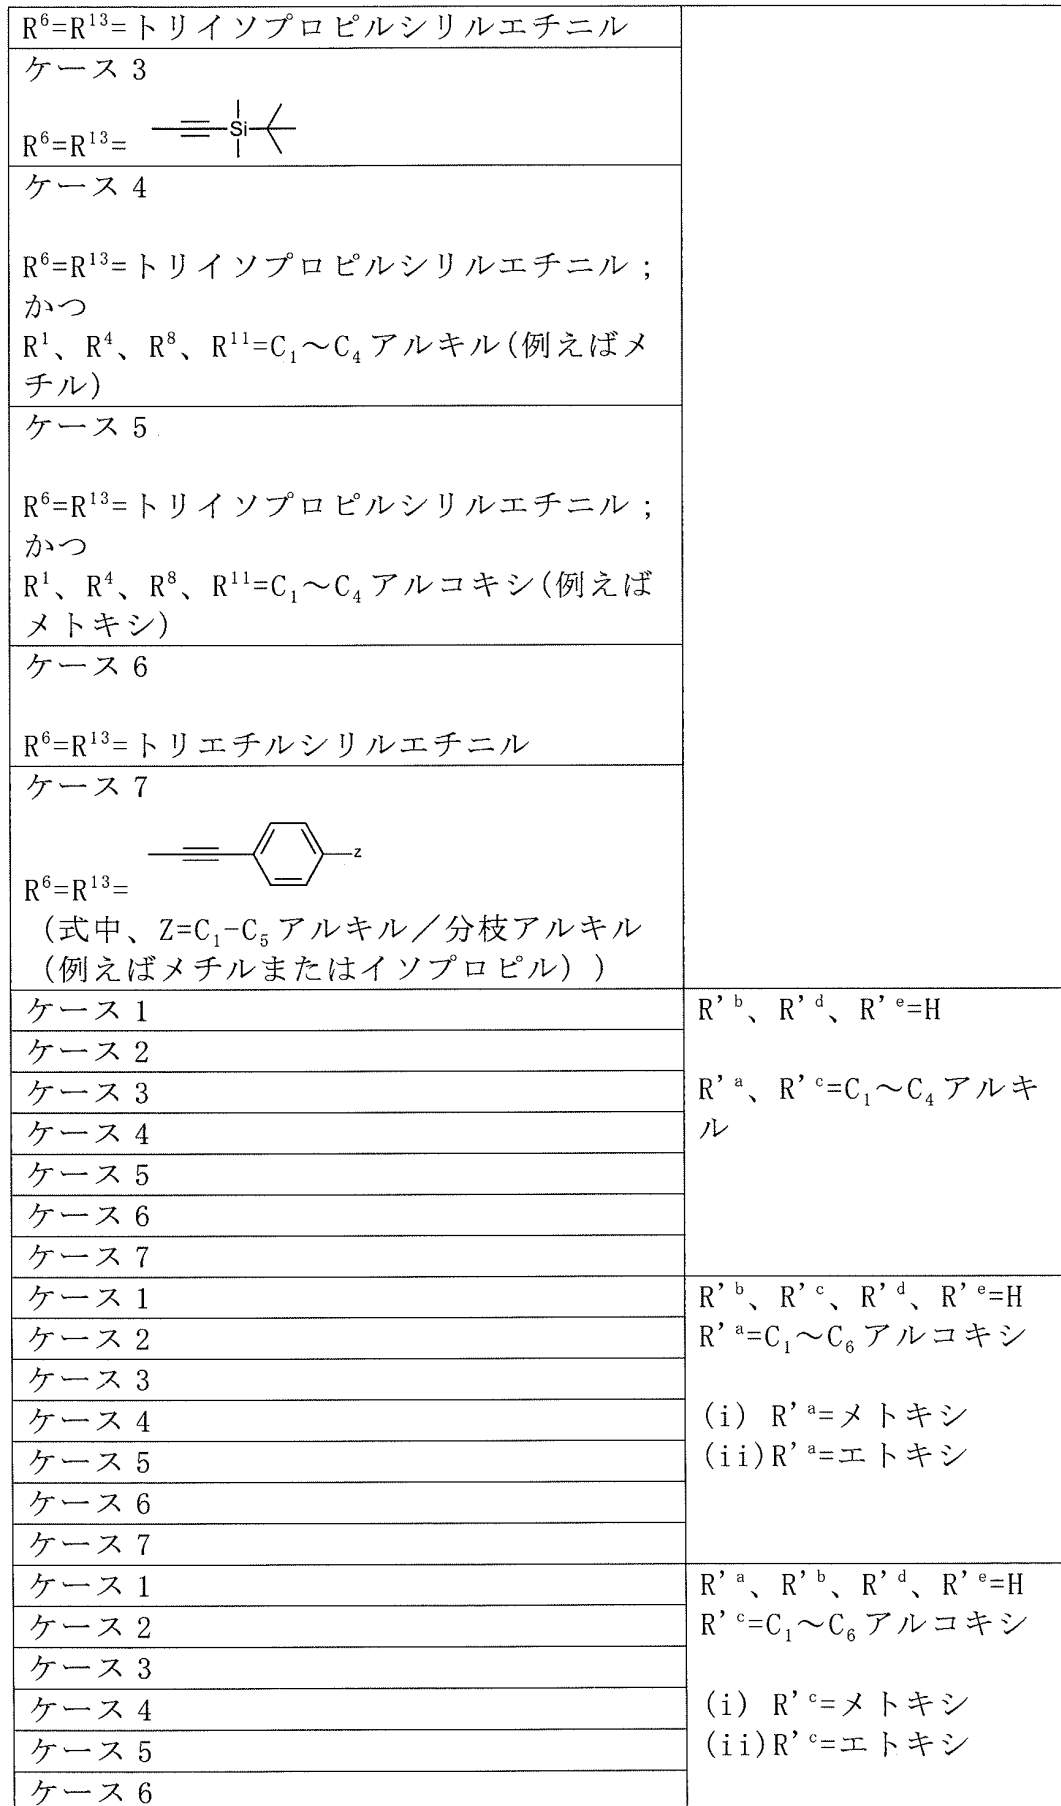 R⁶=R¹³=トリイソプロピルシリルエチニル
ケース 3
R⁶=R¹³= Si
ケース 4
R⁶=R¹³=トリイソプロピルシリルエチニル；
かつ
R¹、R⁴、R⁸、R¹¹=C₁～C₄アルキル(例えばメ
チル)
ケース 5
R⁶=R¹³=トリイソプロピルシリルエチニル；
かつ
R¹、R⁴、R⁸、R¹¹=C₁～C₄アルコキシ(例えば
メトキシ)
ケース 6
R⁶=R¹³=トリエチルシリルエチニル
ケース 7
Z
R⁶=R¹³=
(式中、Z=C₁-C₅アルキル／分枝アルキル
(例えばメチルまたはイソプロピル))
ケース 1
ケース 2
ケース 3
ケース 4
ケース 5
ケース 6
ケース 7
R'ᵇ、R'ᵈ、R'ᵉ=H
R'ᵃ、R'ᶜ=C₁～C₄アルキ
ル
ケース 1
ケース 2
ケース 3
ケース 4
ケース 5
ケース 6
ケース 7
R'ᵇ、R'ᶜ、R'ᵈ、R'ᵉ=H
R'ᵃ=C₁～C₆アルコキシ
(i) R'ᵃ=メトキシ
(ii)R'ᵃ=エトキシ
ケース 1
ケース 2
ケース 3
ケース 4
ケース 5
ケース 6
R'ᵃ、R'ᵇ、R'ᵈ、R'ᵉ=H
R'ᶜ=C₁～C₆アルコキシ
(i) R'ᶜ=メトキシ
(ii)R'ᶜ=エトキシ